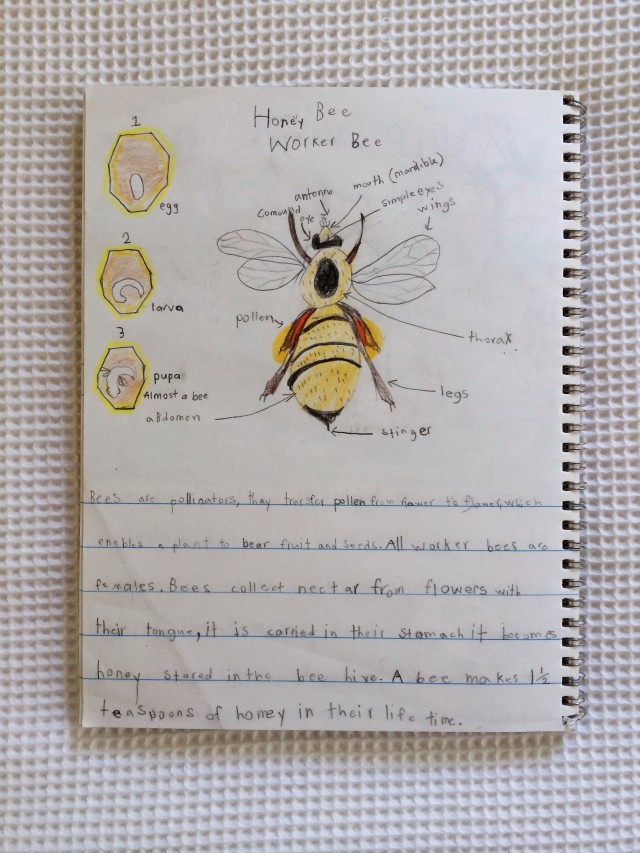 1
Honey Bee
Worker Bee
egg
antenna
mouth (mandible)
Comound
eye
simple eyes
wings
2
larva
pollen
thorax
3
pupa
Almost a bee
aBdomen
legs
stinger
Bees are pollinators, they transfer pollen from flower to flower, which
enables a plant to bear fruit and seeds. All worker bees are
females. Bees collect nectar from flowers with
their tongue, it is carried in their stomach it becomes
honey stored in the bee hive. A bee makes 1 1/2
teaspoons of honey in their life time.